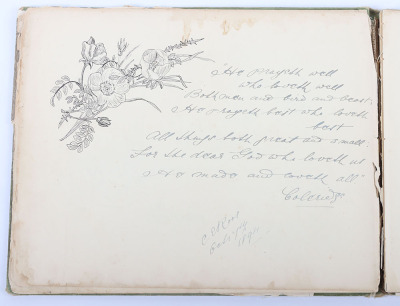 "He prayeth well
who loveth well
Both man and bird and beast;
He prayeth best who loveth
best
All things both great and small:
For the dear God who loveth us
He made and loveth all"
Coleridge